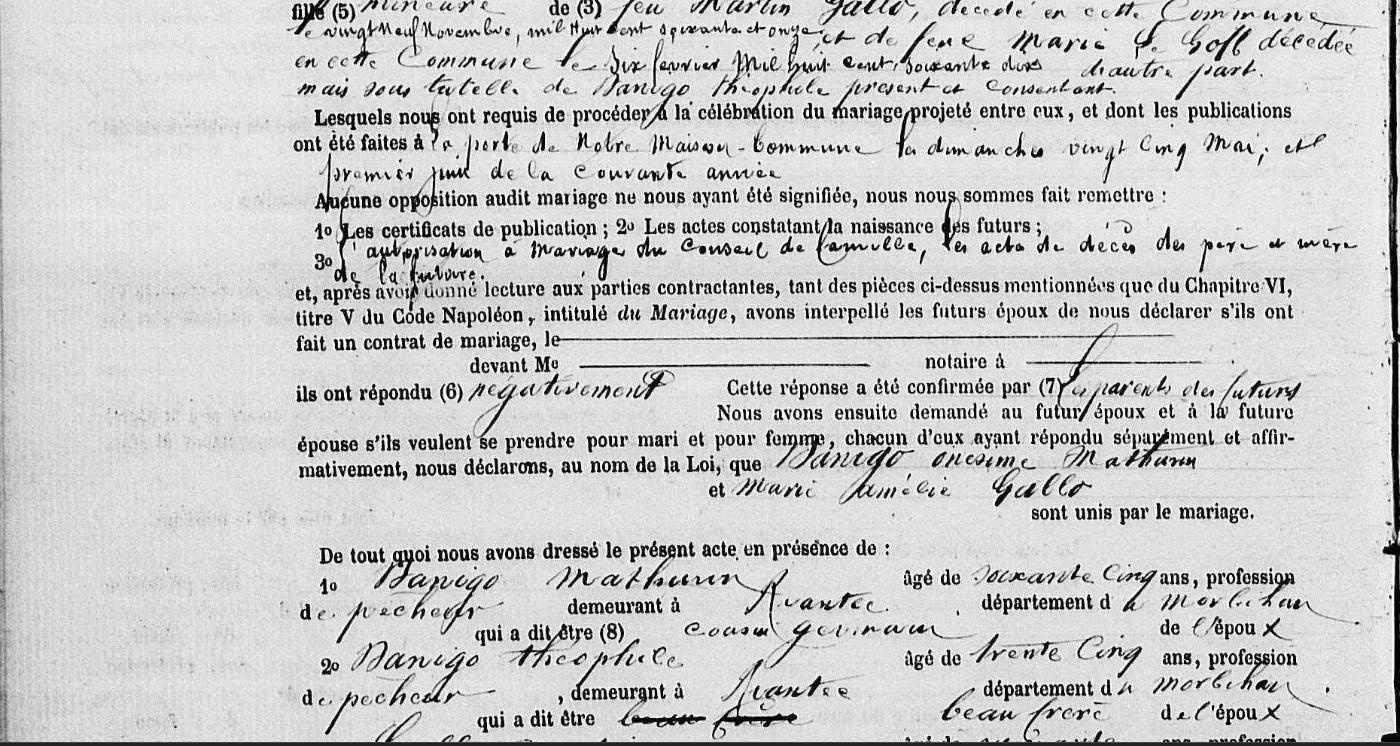 fille (5) mineure de (3) feu Martin Gallo, décédé en cette Commune
le vingt Neuf Novembre, mil Huit cent soixante et onze, et de feue Marie Le Goff décédée
en cette Commune le Six fevrier Mil huit cent, soixante dix d'autre part.
mais sous tutelle de Danigo théophile present et Consentant.
Lesquels nous ont requis de procéder à la célébration du mariage projeté entre eux, et dont les publications
ont été faites à la porte de Notre Maison-Commune les dimanches vingt Cinq Mai, et
premier juin de la Courante année
Aucune opposition audit mariage ne nous ayant été signifiée, nous nous sommes fait remettre :
1o Les certificats de publication ; 2o Les actes constatant la naissance des futurs ;
3o l'autorisation à Mariage du Conseil de famille, les acte de décès des père et mère
de la future.
et, après avoir donné lecture aux parties contractantes, tant des pièces ci-dessus mentionnées que du Chapitre VI,
titre V du Code Napoléon, intitulé du Mariage, avons interpellé les futurs époux de nous déclarer s'ils ont
fait un contrat de mariage, le
devant Me notaire à
ils ont répondu (6) négativement Cette réponse a été confirmée par (7) les parents des futurs
Nous avons ensuite demandé au futur époux et à la future
épouse s'ils veulent se prendre pour mari et pour femme, chacun d'eux ayant répondu séparément et affir-
mativement, nous déclarons, au nom de la Loi, que Danigo onesime Mathurin
et Marie amélie Gallo
sont unis par le mariage.
De tout quoi nous avons dressé le présent acte en présence de :
1o Danigo Mathurin âgé de soixante Cinq ans, profession
de pêcheur demeurant à département du Morbihan
qui a dit être (8) cousin germain de l'époux
2o Danigo théophile âgé de trente Cinq ans, profession
de pêcheur, demeurant à département du Morbihan
qui a dit être beau frère beau frere de l'époux